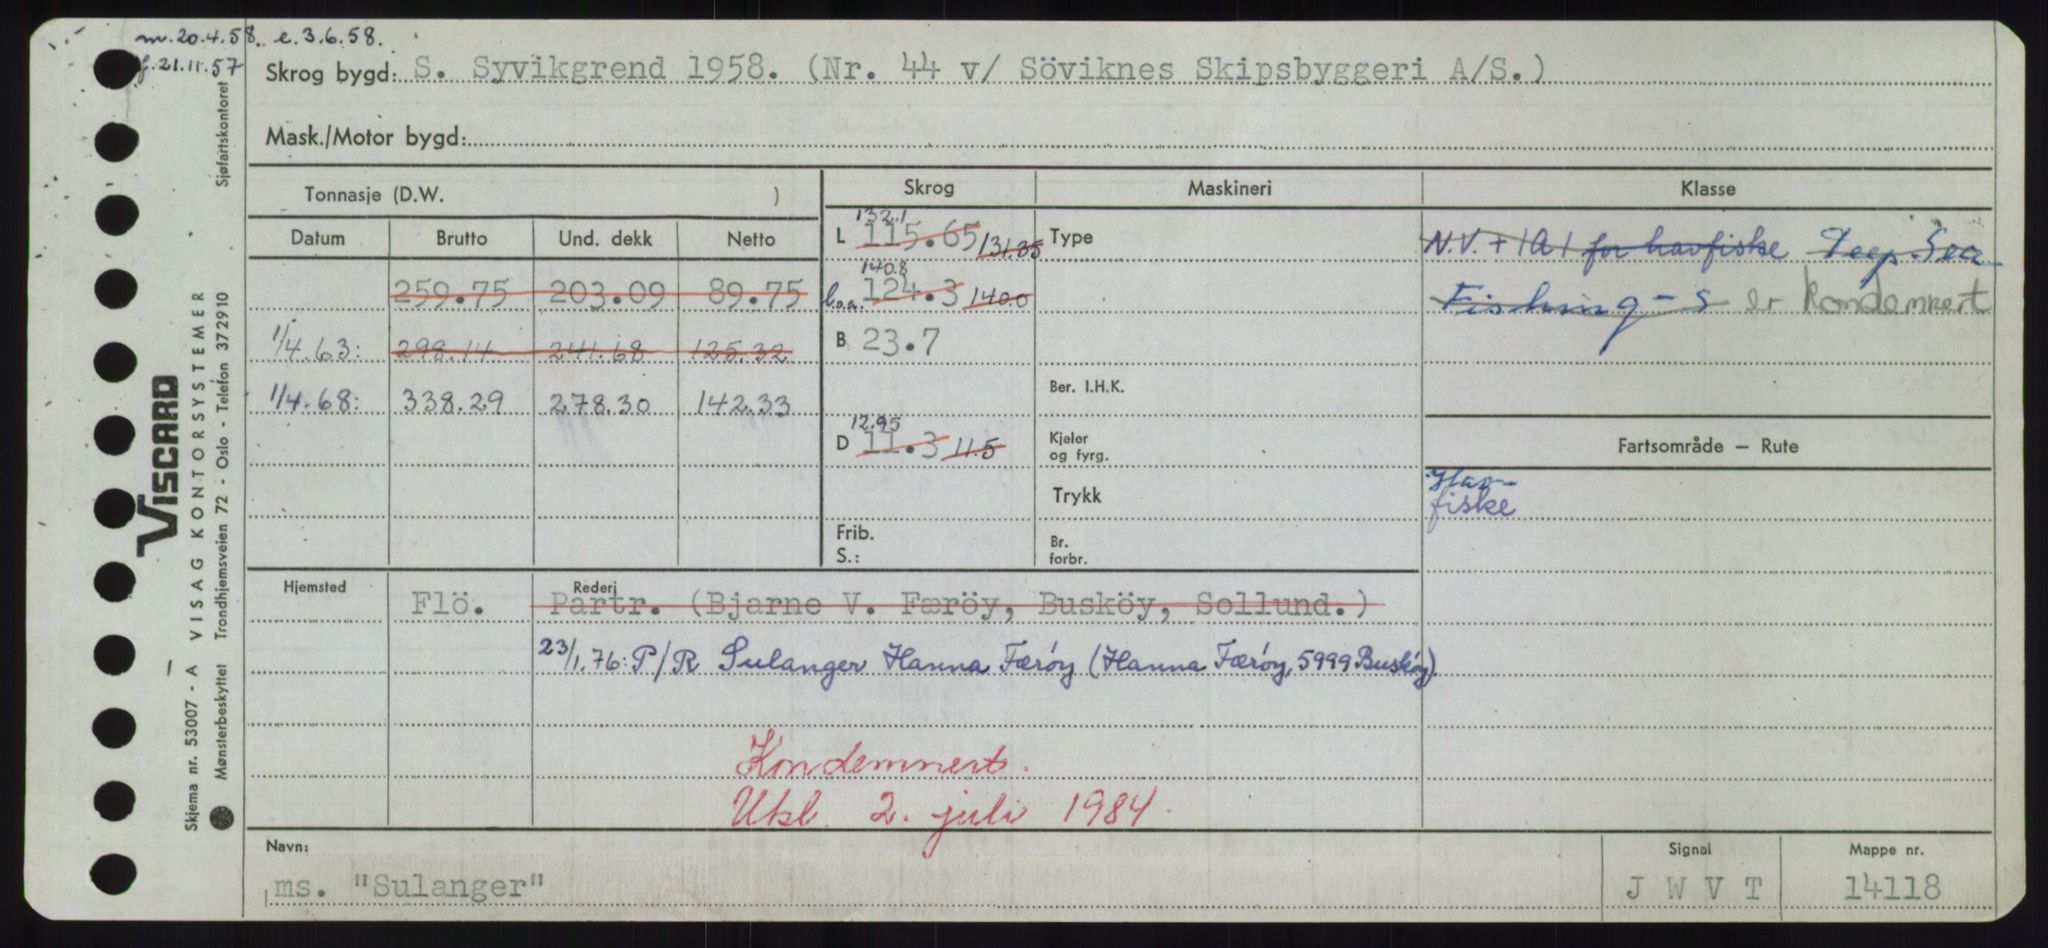 m. 20.4.58. e. 3.6.58.
f. 21.11.57
Skrog bygd: S. Syvikgrend 1958. (Nr. 44 v/ Söviknes Skipsbyggeri A/S.)
Mask./Motor bygd:
Tonnasje (D.W. )
Skrog
Maskineri
Klasse
Datum
Brutto
Und. dekk
Netto
259.75 203.09 89.75
1/4.63: 298.14 241.68 125.32
1/4.68: 338.29 278.30 142.33
132.1
L 115.65 131.35
140.8
l.o.a. 124.3 140.0
B 23.7
12.95
D 11.3 11.5
Frib.
S.:
Type
Ber. I.H.K.
Kjeler
og fyrg.
Trykk
Br.
forbr.
N.V. + 1A1 for havfiske Deep Sea
Fishing - S er kondemnert
Fartsområde — Rute
Hav-
fiske
Hjemsted
Flö.
Rederi
Partr. (Bjarne V. Færöy, Busköy, Sollund.)
23/1.76: P/R Sulanger Hanna Færöy (Hanna Færöy, 5999 Busköy).
Kondemnert.
Utsl. 2. juli 1984.
Navn:
ms. "Sulanger"
Signal
J W V T
Mappe nr.
14118
VISCARD
Skjema nr. 53007 - A VISAG KONTORSYSTEMER Sjøfartskontoret
Mønsterbeskyttet Trondhjemsveien 72 - Oslo - Telefon 372910